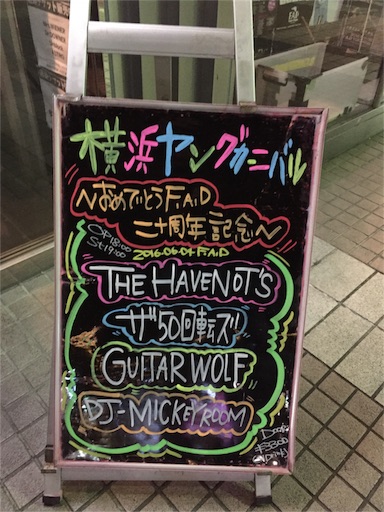 横浜ヤングカーニバル
～おめでとうF.A.D
二十周年記念～
OP18:00
St19:00
2016.06.04 F.A.D
THE HAVENOT'S
ザ50回転ズ
GUITAR WOLF
DJ-MICKEY ROOM